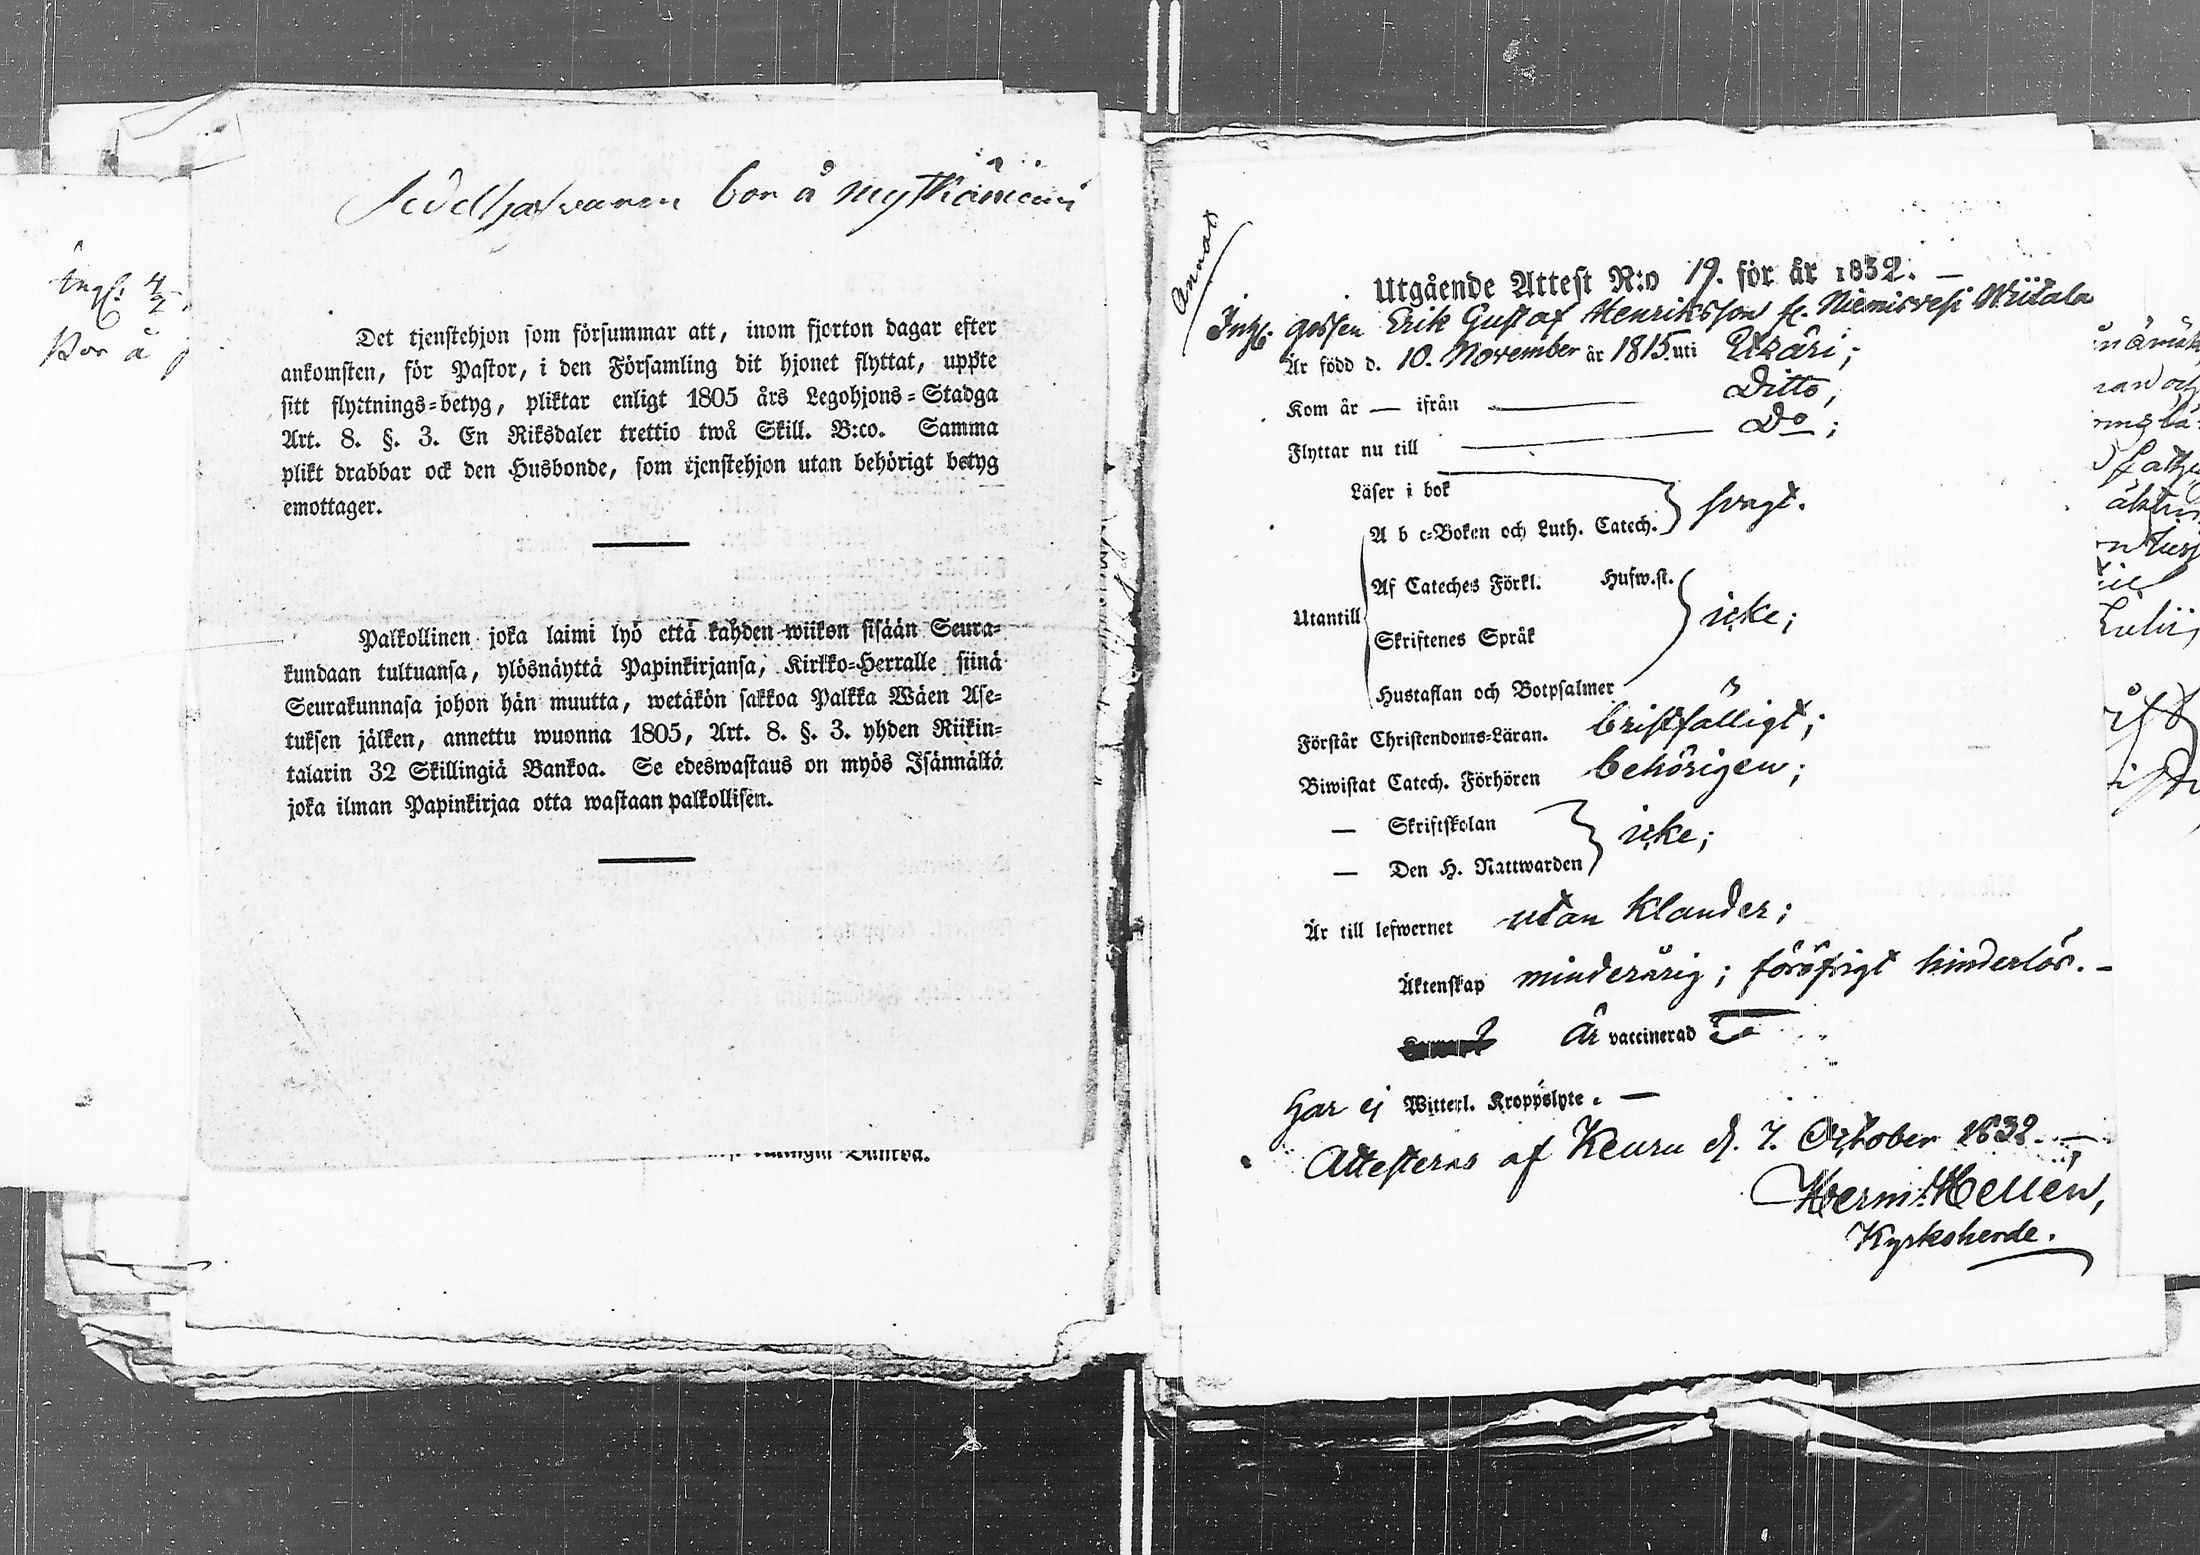 bor å
Det tjenstehjon som försummar att, inom fjorton dagar efter
ankomsten, för Pastor, i den Församling dit hjonet flyttat, uppte
sitt flyttnings=betyg, pliktar enligt 1805 års Legohjons=Stadga
Art. 8. §. 3. En Riksdaler trettio twå Skill. B:co. Samma
plikt drabbar ock den Husbonde, som tjenstehjon utan behörigt betyg
emottager.
Palkollinen joka laimi lyö että kahden wiikon sisään Seura=
kundaan tultuansa, ylösnäyttä Papinkirjansa, Kirkko=Herralle siinä
Seurakunnasa johon hän muutta, wetäkön sakkoa Palkka Wäen Ase=
tuksen jälken, annettu wuonna 1805, Art. 8. §. 3. yhden Riikin=
talarin 32 Skillingiä Bankoa. Se edeswastaus on myös Isännältä
joka ilman Papinkirjaa otta wastaan palkollisen.
Utgående Attest N:o 19. för år 1832. —
gossen Erik Gustaf Henriksson fr. Niemisvesi Wiitala
Är född d. 10. November år 1815 uti Etzäri;
Kom år — ifrån — Ditto;
Flyttar nu till — Do;
Läser i bok
A b c=Boken och Luth. Catech. } svagt.
Af Cateches Förkl. Husw.st.
Utantill
Skriftenes Språk } icke;
Hustaflan och Botpsalmer
Förstår Christendoms=Läran. bristfälligt;
Biwistat Catech. Förhören behörigen;
— Skriftskolan
— Den H. Nattwarden } icke;
Är till lefwernet utan klander;
Äktenskap minderårig; föröfrigt hinderlös. —
Är vaccinerad
Har ej Witterl. Kroppslyte. —
Attesteras af Keuru d. 7. October 1832. —
Herm: Hellén,
Kyrkoherde.